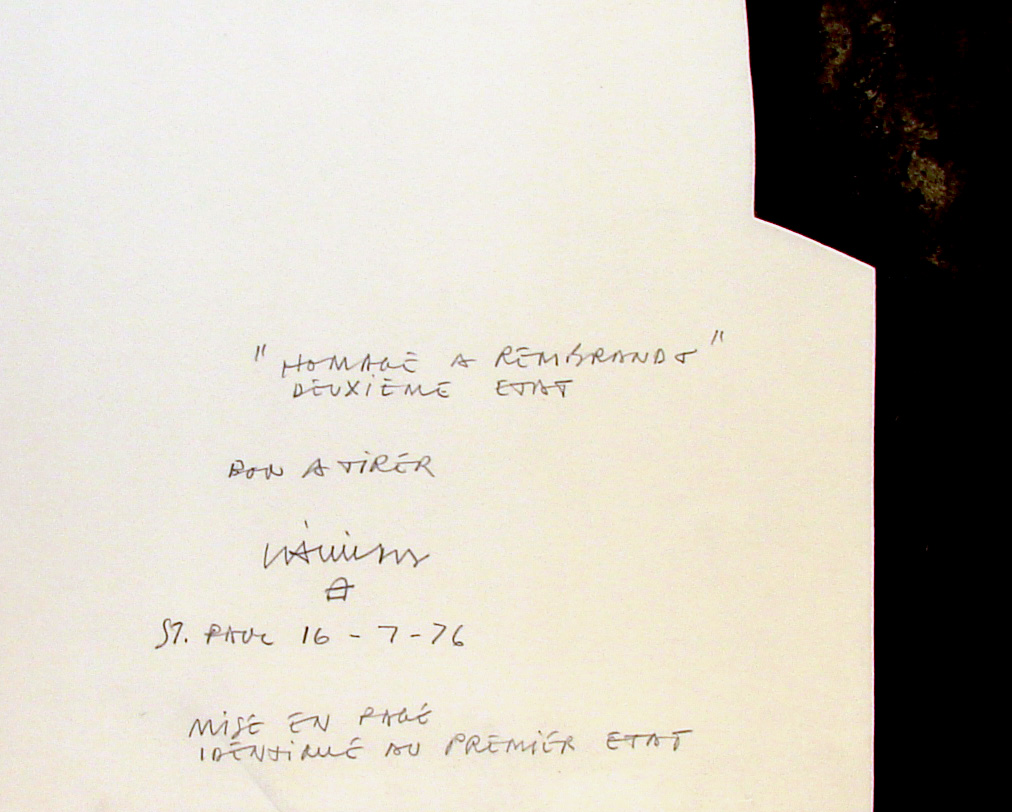 "HOMAGE A REMBRANDT"
DEUXIÈME ETAT
BON A TIRER
A
ST. PAUL 16 - 7 - 76
MISE EN PAGE
IDENTIQUE AU PREMIER ETAT